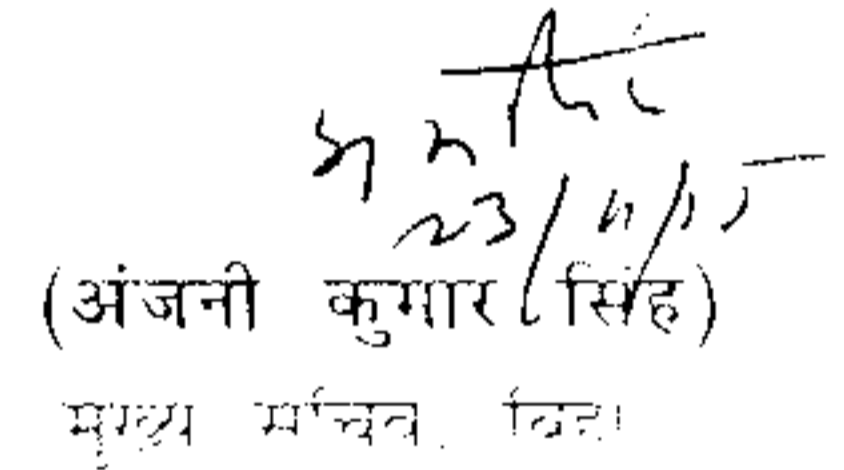 23/11/15
(अंजनी कुमार सिंह)
मुख्य सचिव, बिहार